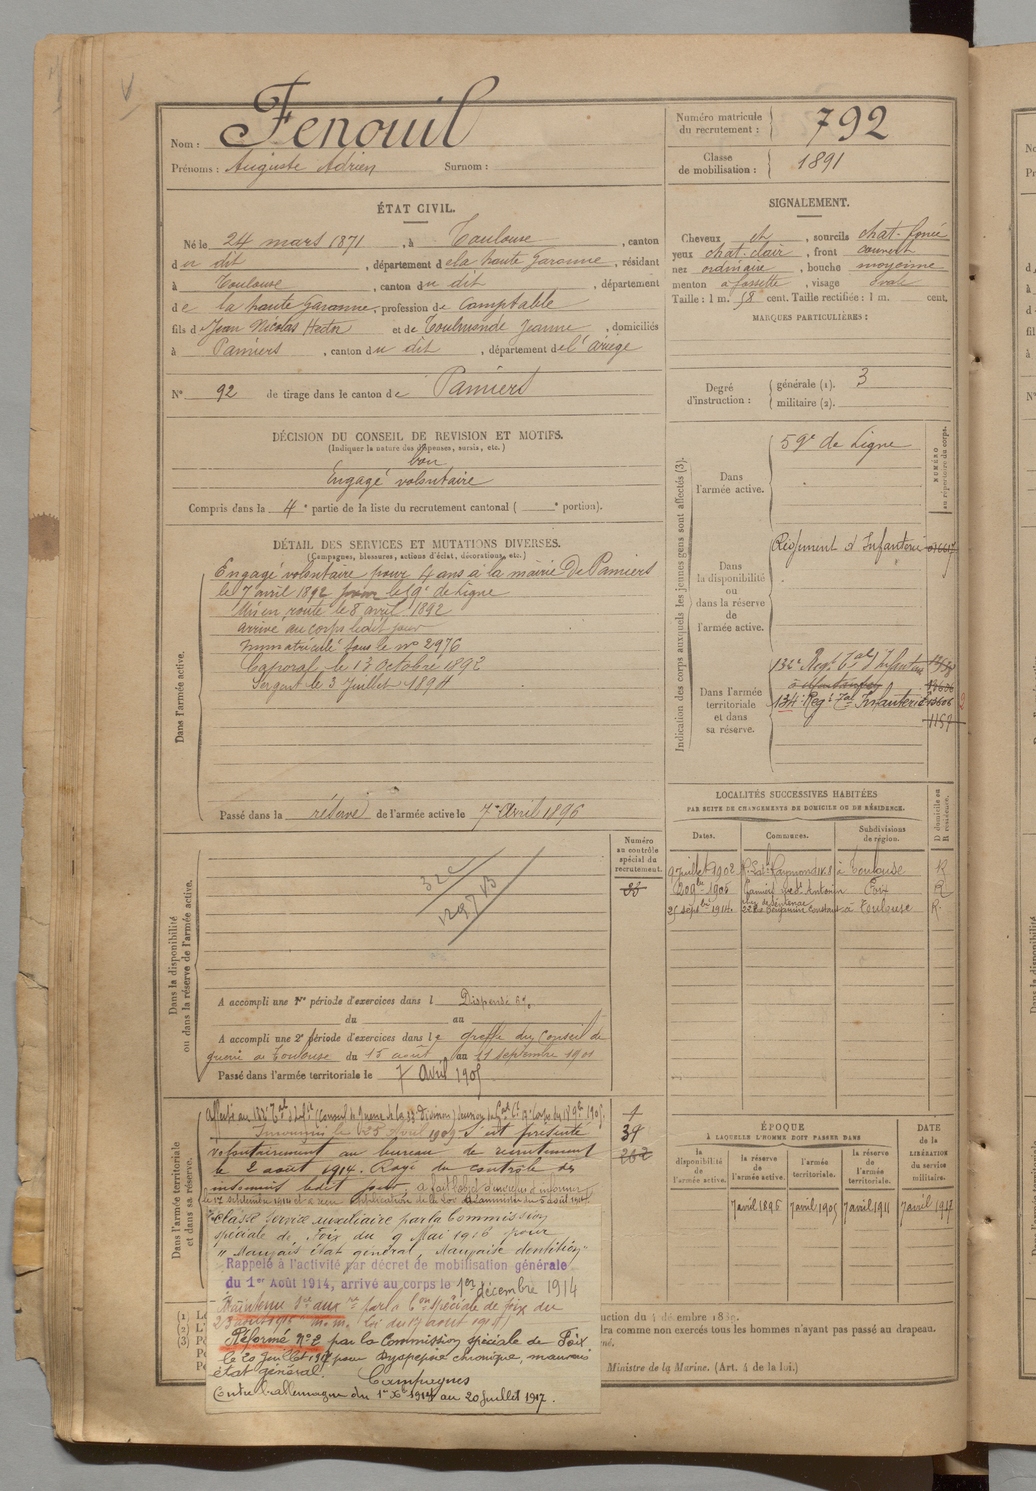 Nom : Fenouil
Prénoms : Auguste Adrien Surnom :
Numéro matricule
du recrutement : 792
Classe
de mobilisation : 1891
ÉTAT CIVIL.
Né le 24 mars 1871, à Toulouse, canton
du dit, département de la haute Garonne, résidant
à Toulouse, canton du dit, département
de la haute Garonne, profession de Comptable
fils de Jean Nicolas Hector et de Toulmonde Jeanne, domiciliés
à Pamiers, canton du dit, département de l'ariège
N° 92 de tirage dans le canton de Pamiers
SIGNALEMENT.
Cheveux ch, sourcils chat. foncé
yeux chat. clair, front couvert
nez ordinaire, bouche moyenne
menton à fossette, visage ovale
Taille : 1 m. 58 cent. Taille rectifiée : 1 m. cent.
MARQUES PARTICULIÈRES :
Degré
d'instruction :
générale (1). 3
militaire (2).
DÉCISION DU CONSEIL DE REVISION ET MOTIFS.
(Indiquer la nature des dispenses, sursis, etc.)
bon
Engagé volontaire
Compris dans la 4e partie de la liste du recrutement cantonal ( e portion).
DÉTAIL DES SERVICES ET MUTATIONS DIVERSES.
(Campagnes, blessures, actions d'éclat, décorations, etc.)
Dans l'armée active.
Engagé volontaire pour 4 ans à la mairie de Pamiers
le 7 avril 1892 pour le 59e de Ligne
Mis en route le 8 avril 1892
arrivé au corps ledit jour
Immatriculé sous le no 2976
Caporal le 13 Octobre 1892
Sergent le 3 Juillet 1894
Passé dans la réserve de l'armée active le 7 Avril 1896
Indication des corps auxquels les jeunes gens sont affectés (3).
NUMÉRO
au répertoire du corps.
Dans
l'armée active.
59e de Ligne
Dans
la disponibilité
ou
dans la réserve
de
l'armée active.
Régiment d'Infanterie
Dans l'armée
territoriale
et dans
sa réserve.
132e Regt Tal d'Infanterie
134e Regt Tal Infanterie
1157
LOCALITÉS SUCCESSIVES HABITÉES
PAR SUITE DE CHANGEMENTS DE DOMICILE OU DE RÉSIDENCE.
Dates. Communes. Subdivisions de région. D domicile ou R résidence.
9 juillet 1902 à Toulouse R
20 9bre 1906 Pamiers Foix R
25 septbre 1914 22 Bis Benjamin Constant à Toulouse R
Dans la disponibilité
ou dans la réserve de l'armée active.
Numéro
au contrôle
spécial du
recrutement.
A accompli une 1re période d'exercices dans l Dispensé
du au
A accompli une 2e période d'exercices dans le greffe du Conseil de
guerre de Toulouse du 15 août au 11 septembre 1901
Passé dans l'armée territoriale le 7 Avril 1905
Dans l'armée territoriale
et dans sa réserve.
Insoumis le 25 Avril 1909. S'est présenté
volontairement au bureau de recrutement
le 2 août 1914. Rayé du contrôle des
insoumis ledit jour
1
34
Classé service auxiliaire par la Commission
spéciale de Foix du 9 Mai 1916 pour
"Mauvais état général, Mauvaise dentition"
Rappelé à l'activité par décret de mobilisation générale
du 1er Août 1914, arrivé au corps le 1er décembre 1914
Maintenu sce aux re par la Con spéciale de foix du
loi du 17 aout 1915
Réformé No 2 par la Commission spéciale de Foix
le 20 Juillet 1917 pour Dyspepsie chronique, mauvais
état général.
Campagnes
Contre l'allemagne du 1er Xbre 1914 au 20 Juillet 1917.
ÉPOQUE
À LAQUELLE L'HOMME DOIT PASSER DANS
la disponibilité de l'armée active. la réserve de l'armée active. l'armée territoriale. la réserve de l'armée territoriale.
DATE
de la
LIBÉRATION
du service
militaire.
7 avril 1896 7 avril 1905 7 avril 1911 7 avril 1917
dra comme non exercés tous les hommes n'ayant pas passé au drapeau.
Ministre de la Marine. (Art. 4 de la loi.)